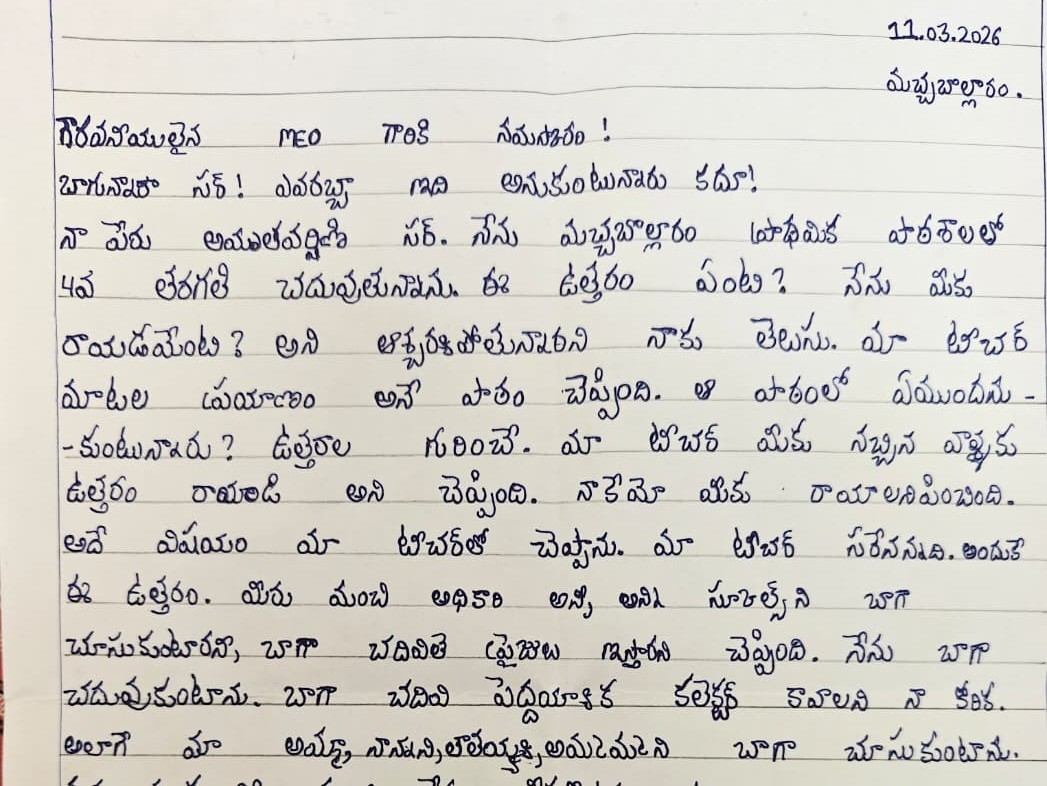 11.03.2026
మచ్చబొల్లారం.
గౌరవనీయులైన MEO గారికి నమస్కారం!
బాగున్నారా సర్! ఎవరబ్బా ఇది అనుకుంటున్నారు కదూ!
నా పేరు అమృతవర్షిణి సర్. నేను మచ్చబొల్లారం ప్రాథమిక పాఠశాలలో
4వ తరగతి చదువుతున్నాను. ఈ ఉత్తరం ఏంటి? నేను మీకు
రాయడమేంటి? అని ఆశ్చర్యపోతున్నారని నాకు తెలుసు. మా టీచర్
మాటల ప్రయాణం అనే పాఠం చెప్పింది. ఆ పాఠంలో ఏముందను-
-కుంటున్నారు? ఉత్తరాల గురించే. మా టీచర్ మీకు నచ్చిన వాళ్ళకు
ఉత్తరం రాయండి అని చెప్పింది. నాకేమో మీకు రాయాలనిపించింది.
అదే విషయం మా టీచర్‌తో చెప్పాను. మా టీచర్ సరేనన్నది. అందుకే
ఈ ఉత్తరం. మీరు మంచి అధికారి అని, అన్ని స్కూల్స్ ని బాగా
చూసుకుంటారని, బాగా చదివితే ప్రైజులు ఇస్తారని చెప్పింది. నేను బాగా
చదువుకుంటాను. బాగా చదివి పెద్దయ్యాక కలెక్టర్ కావాలని నా కోరిక.
అలాగే మా అమ్మా, నాన్నని, తాతయ్యని, అమ్మమ్మని బాగా చూసుకుంటాను.